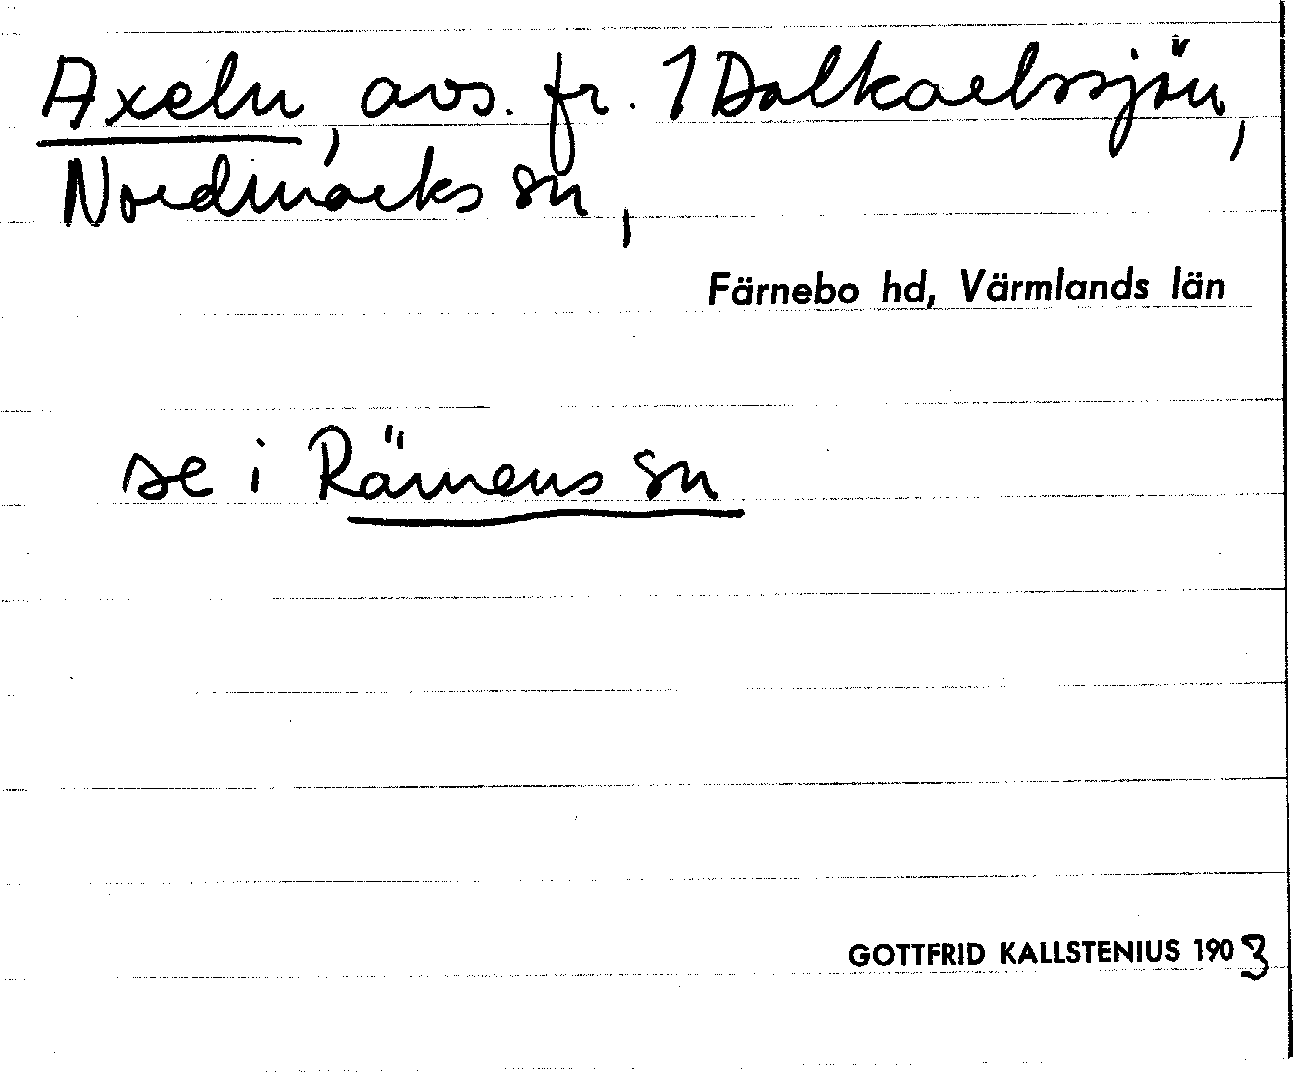 Axeln, avs. fr. 1 Dalkarlssjön,
Nordmarks sn,
Färnebo hd, Värmlands län
se i Rämens sn
GOTTFRID KALLSTENIUS 1903